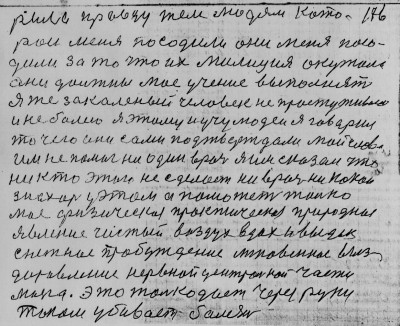 рила правду тем людям кото- 176
рои меня посодили они меня поса-
дили за то што их милиция окутала
они должны мое учение выполнят
Я же закаленый человек не простуживаюс
и не болею я этому и учу людей я гаварил
то чего они сами подтверждали мои слова
им не помог ни один врач я им сказал что
ни кто этого не сделает ни врач ни какой
знахор у этом а поможет толко
мое физическое практическое природное
явление чистый воздух вдох и выдох
снежное пробуждение мгновенное выз-
доравление нервной центролной части
мозга. Это толко дает через руки
током убивает болезн